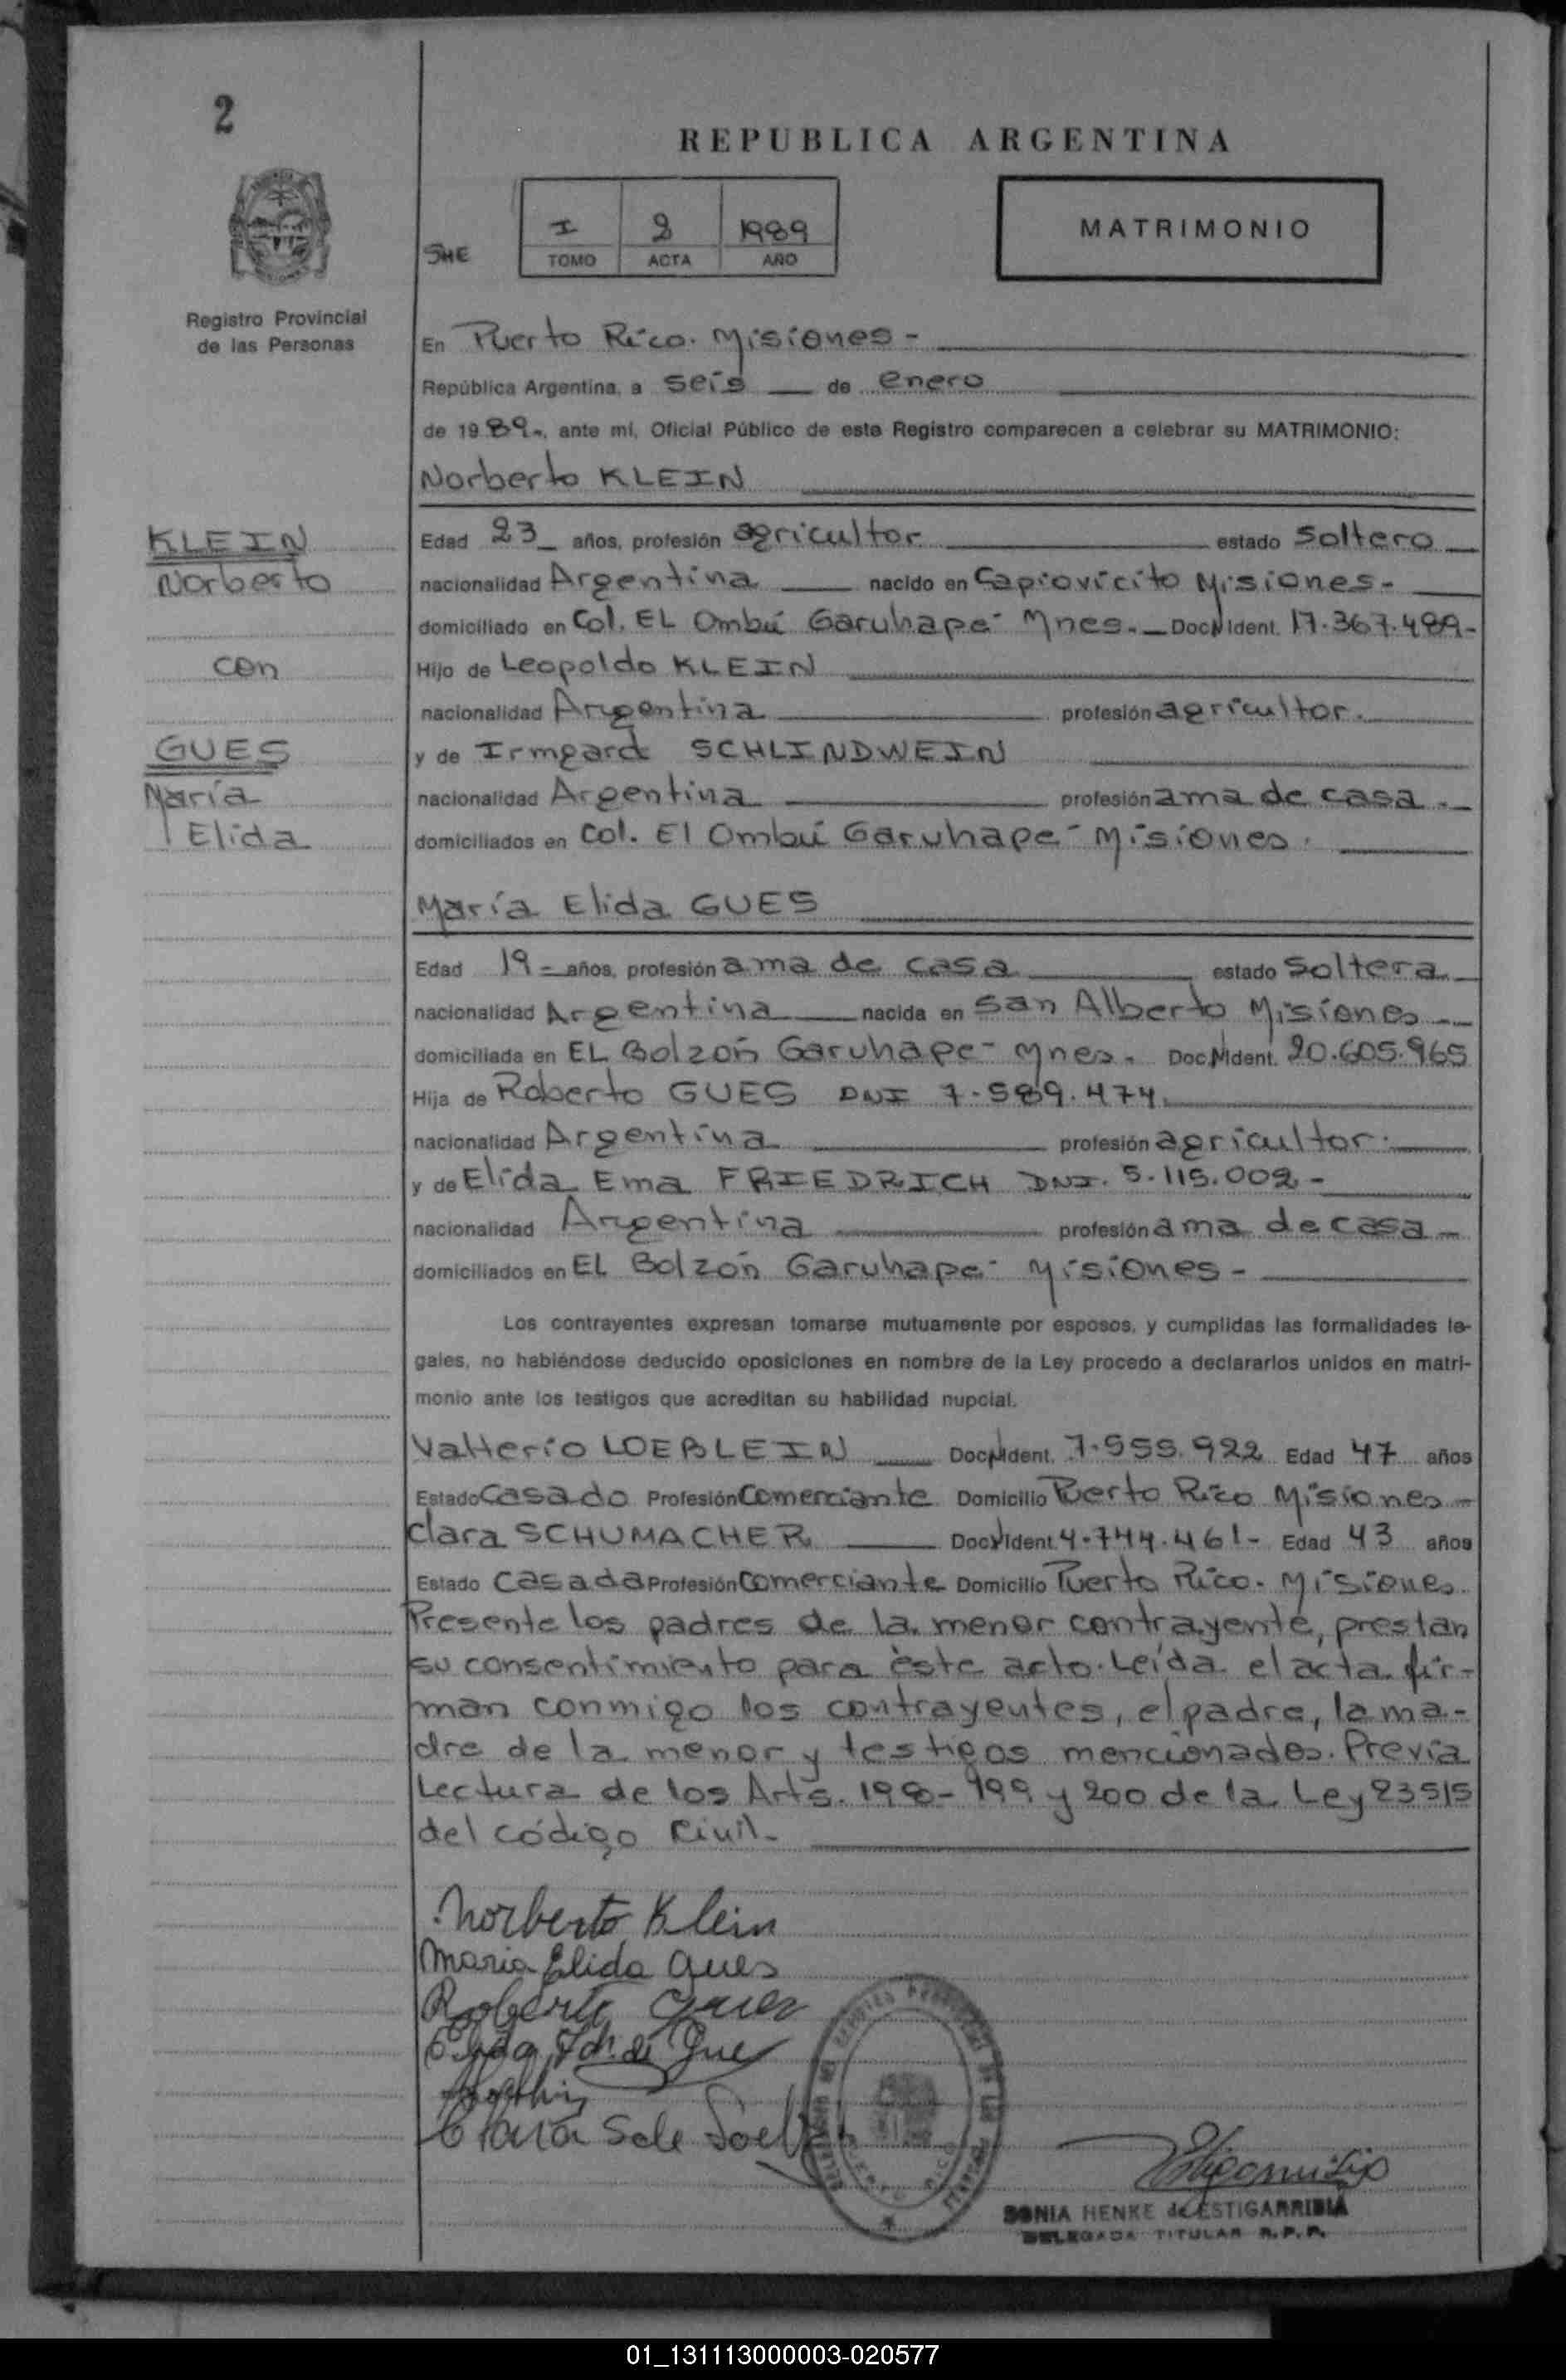 2
REPUBLICA ARGENTINA
I 2 1989
TOMO ACTA AÑO
SHE
MATRIMONIO
Registro Provincial
de las Personas
En Puerto Rico. Misiones -
República Argentina, a seis de enero
de 1989-, ante mí, Oficial Público de este Registro comparecen a celebrar su MATRIMONIO:
Norberto KLEIN
KLEIN
Norberto
con
GUES
María
Elida
Edad 23 años, profesión agricultor estado Soltero
nacionalidad Argentina nacido en Capiovicito Misiones-
domiciliado en Col. EL Ombú Garuhapé- Mnes. Doc. Ident. 17.367.489-
Hijo de Leopoldo KLEIN
nacionalidad Argentina profesión agricultor.
y de Irmgard SCHLINDWEIN
nacionalidad Argentina profesión ama de casa.
domiciliados en Col. El Ombú Garuhape- Misiones.
María Elida GUES
Edad 19 años, profesión ama de casa estado Soltera
nacionalidad Argentina nacida en San Alberto Misiones
domiciliada en EL Bolzón Garuhape- Mnes. Doc. Ident. 20.605.965
Hija de Roberto GUES DNI 7.589.474.
nacionalidad Argentina profesión agricultor.
y de Elida Ema FRIEDRICH DNI. 5.115.002-
nacionalidad Argentina profesión ama de casa-
domiciliados en EL Bolzón Garuhape- Misiones-
Los contrayentes expresan tomarse mutuamente por esposos, y cumplidas las formalidades le-
gales, no habiéndose deducido oposiciones en nombre de la Ley procedo a declararlos unidos en matri-
monio ante los testigos que acreditan su habilidad nupcial.
Valterio LOEBLEIN Doc. Ident. 7.555.922 Edad 47 años
Estado Casado Profesión Comerciante Domicilio Puerto Rico Misiones-
Clara SCHUMACHER Doc. Ident. 4.744.461- Edad 43 años
Estado Casada Profesión Comerciante Domicilio Puerto Rico. Misiones.
Presente los padres de la menor contrayente, prestan
su consentimiento para éste acto. Leída el acta fir-
man conmigo los contrayentes, el padre, la ma-
dre de la menor y testigos mencionados. Previa
Lectura de los Arts. 198-199 y 200 de la Ley 23515
del código Civil-
Norberto Klein
Maria Elida Gues
Roberto Gues
Elida de Gues
Clara
SONIA HENKE de ESTIGARRIBIA
DELEGADA TITULAR R.P.P.
01_131113000003-020577